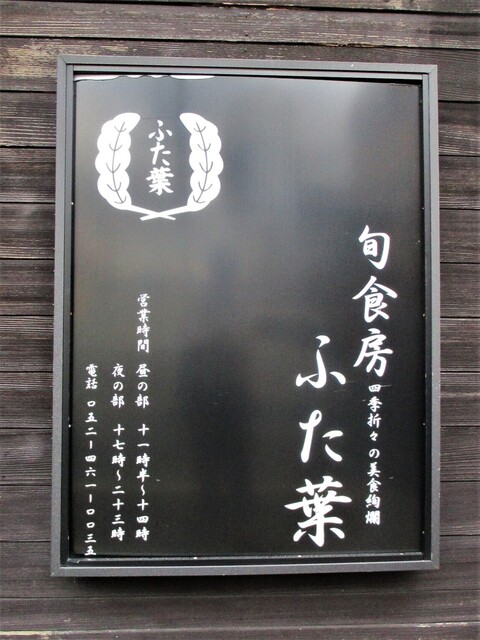 旬食房
四季折々の美食絢爛
ふた葉
ふた葉
営業時間 昼の部 十一時半〜十四時
夜の部 十七時〜二十三時
電話 〇五二ー四六一ー〇〇三五